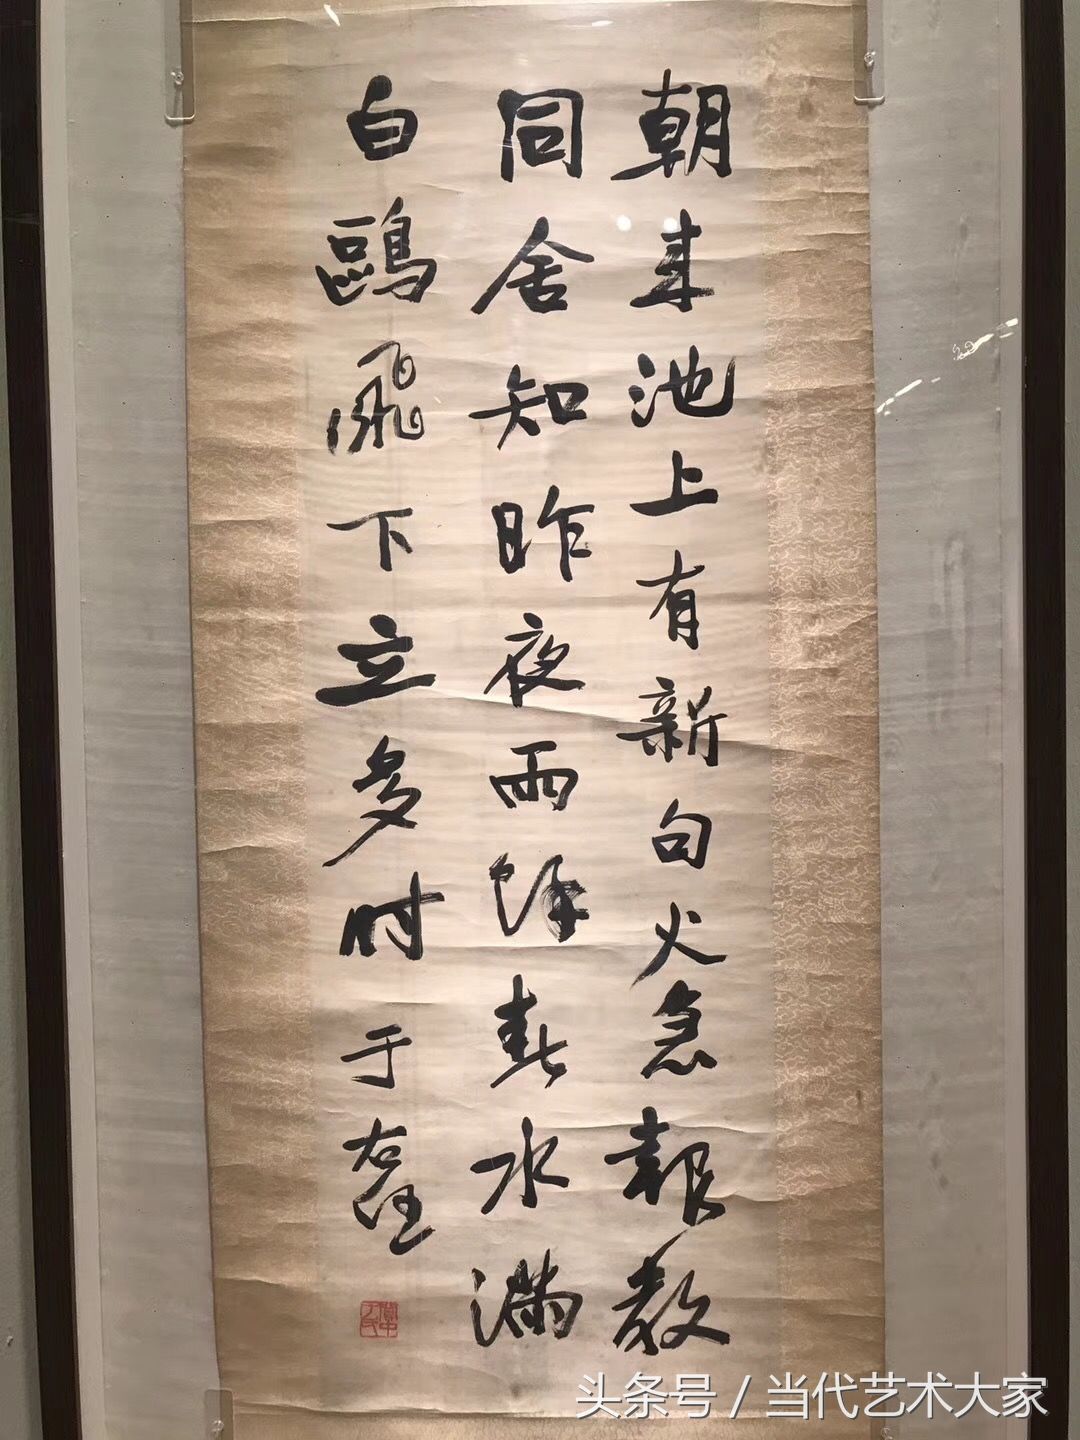 朝来池上有新句火急報教
同舍知昨夜雨餘春水滿
白鷗飛下立多时
于右任
头条号 / 当代艺术大家